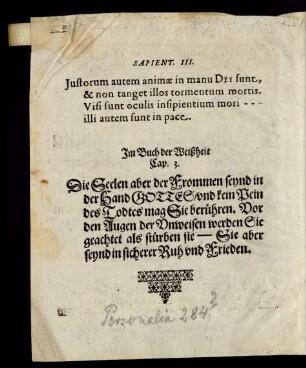 SAPIENT. III.
Justorum autem animæ in manu DEI sunt,
& non tanget illos tormentum mortis.
Visi sunt oculis insipientium mori ---
illi autem sunt in pace.
Im Buch der Weißheit
Cap. 3.
Die Seelen aber der Frommen seynd in
der Hand GOTTES/vnd kein Pein
des Todtes mag Sie berühren. Vor
den Augen der Vnweisen werden Sie
geachtet als stürben sie — Sie aber
seynd in sicherer Ruh vnd Frieden.
Personalia 284